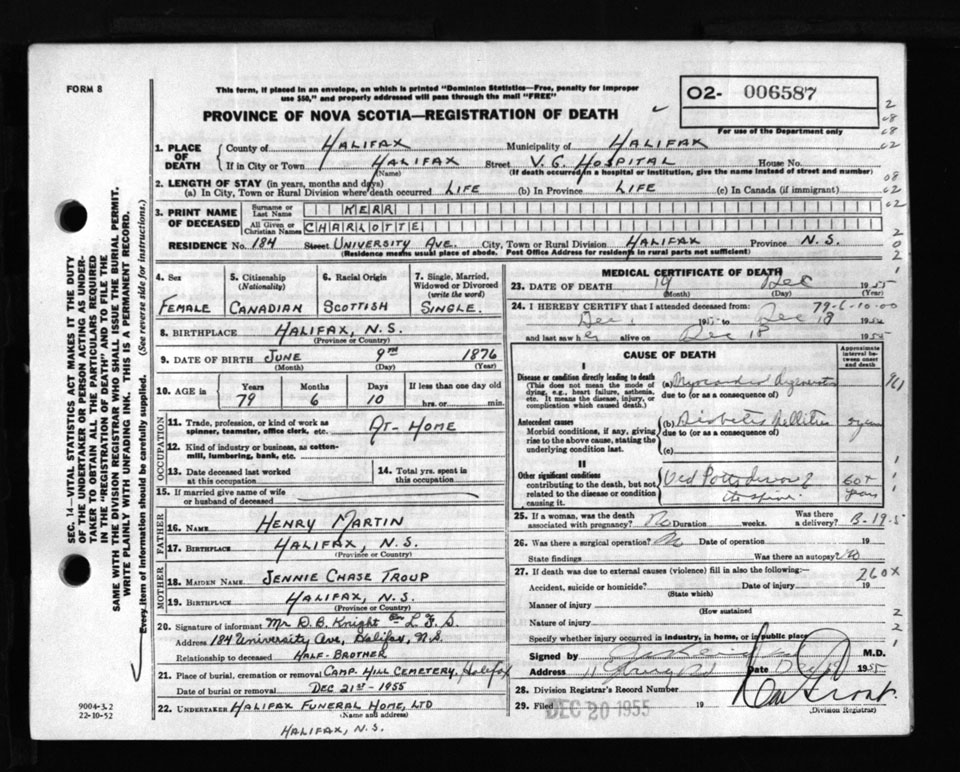 FORM 8
This form, if placed in an envelope, on which is printed "Dominion Statistics—Free, penalty for improper
use $50," and properly addressed will pass through the mail "FREE"
PROVINCE OF NOVA SCOTIA—REGISTRATION OF DEATH
O2- 006587
For use of the Department only
1. PLACE OF DEATH
County of HALIFAX Municipality of HALIFAX
If in City or Town HALIFAX Street V. G. HOSPITAL House No.
(Name) (If death occurred in a hospital or institution, give the name instead of street and number)
2. LENGTH OF STAY (in years, months and days)
(a) In City, Town or Rural Division where death occurred LIFE (b) In Province LIFE (c) In Canada (if immigrant)
3. PRINT NAME OF DECEASED
Surname or Last Name KERR
All Given or Christian Names CHARLOTTE
RESIDENCE No. 184 Street UNIVERSITY AVE. City, Town or Rural Division HALIFAX Province N.S.
(Residence means usual place of abode. Post Office Address for residents in rural parts not sufficient)
4. Sex FEMALE
5. Citizenship (Nationality) CANADIAN
6. Racial Origin SCOTTISH
7. Single, Married, Widowed or Divorced (write the word) SINGLE.
8. BIRTHPLACE HALIFAX, N.S.
(Province or Country)
9. DATE OF BIRTH JUNE 9TH 1876
(Month) (Day) (Year)
10. AGE in Years 79 Months 6 Days 10 If less than one day old hrs. or min.
OCCUPATION
11. Trade, profession, or kind of work as spinner, teamster, office clerk, etc. AT-HOME
12. Kind of industry or business, as cotton-mill, lumbering, bank, etc.
13. Date deceased last worked at this occupation
14. Total yrs. spent in this occupation
15. If married give name of wife or husband of deceased
FATHER
16. NAME HENRY MARTIN
17. BIRTHPLACE HALIFAX, N.S.
(Province or Country)
MOTHER
18. MAIDEN NAME JENNIE CHASE TROUP
19. BIRTHPLACE HALIFAX, N.S.
(Province or Country)
20. Signature of informant Mr D. B. Knight L.F.S.
Address 184 University Ave, Halifax, N.S.
Relationship to deceased HALF-BROTHER
21. Place of burial, cremation or removal CAMP HILL CEMETERY, Halifax
Date of burial or removal DEC 21ST-1955
22. UNDERTAKER HALIFAX FUNERAL HOME, LTD
(Name and address)
HALIFAX, N.S.
MEDICAL CERTIFICATE OF DEATH
23. DATE OF DEATH 19 Dec 1955
(Month) (Day) (Year)
79-6-10-00
24. I HEREBY CERTIFY that I attended deceased from:
Dec 1 195 to Dec 18 195
and last saw h alive on Dec 18 1955
CAUSE OF DEATH
Approximate interval between onset and death
I
Disease or condition directly leading to death
(This does not mean the mode of dying, e.g., heart failure, asthenia, etc. It means the disease, injury, or complication which caused death.)
(a)
due to (or as a consequence of)
Antecedent causes
Morbid conditions, if any, giving rise to the above cause, stating the underlying condition last.
(b) Diabetes Mellitus years
due to (or as a consequence of)
(c)
II
Other significant conditions
contributing to the death, but not related to the disease or condition causing it.
Old Potts disease of the spine 60+ years
25. If a woman, was the death associated with pregnancy? No Duration weeks. Was there a delivery? B-19-5
26. Was there a surgical operation? Date of operation 19
State findings Was there an autopsy? No
27. If death was due to external causes (violence) fill in also the following:—
260X
Accident, suicide or homicide? Date of injury 19
(State which)
Manner of injury
(How sustained
Nature of injury
Specify whether injury occurred in industry, in home, or in public place
Signed by M.D.
Address Date Dec 1955
28. Division Registrar's Record Number
29. Filed DEC 20 1955 19
(Division Registrar)
SEC. 14—VITAL STATISTICS ACT MAKES IT THE DUTY
OF THE UNDERTAKER OR PERSON ACTING AS UNDER-
TAKER TO OBTAIN ALL THE PARTICULARS REQUIRED
IN THE "REGISTRATION OF DEATH" AND TO FILE THE
SAME WITH THE DIVISION REGISTRAR WHO SHALL ISSUE THE BURIAL PERMIT.
WRITE PLAINLY WITH UNFADING INK. THIS IS A PERMANENT RECORD.
Every item of Information should be carefully supplied. (See reverse side for instructions.)
9004-3.2
22-10-52